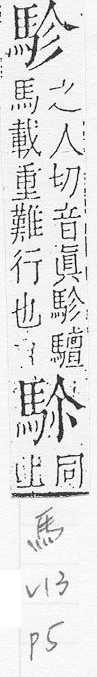 駗
之人切音眞駗驙
馬載重難行也
同
上
馬
V13
P5